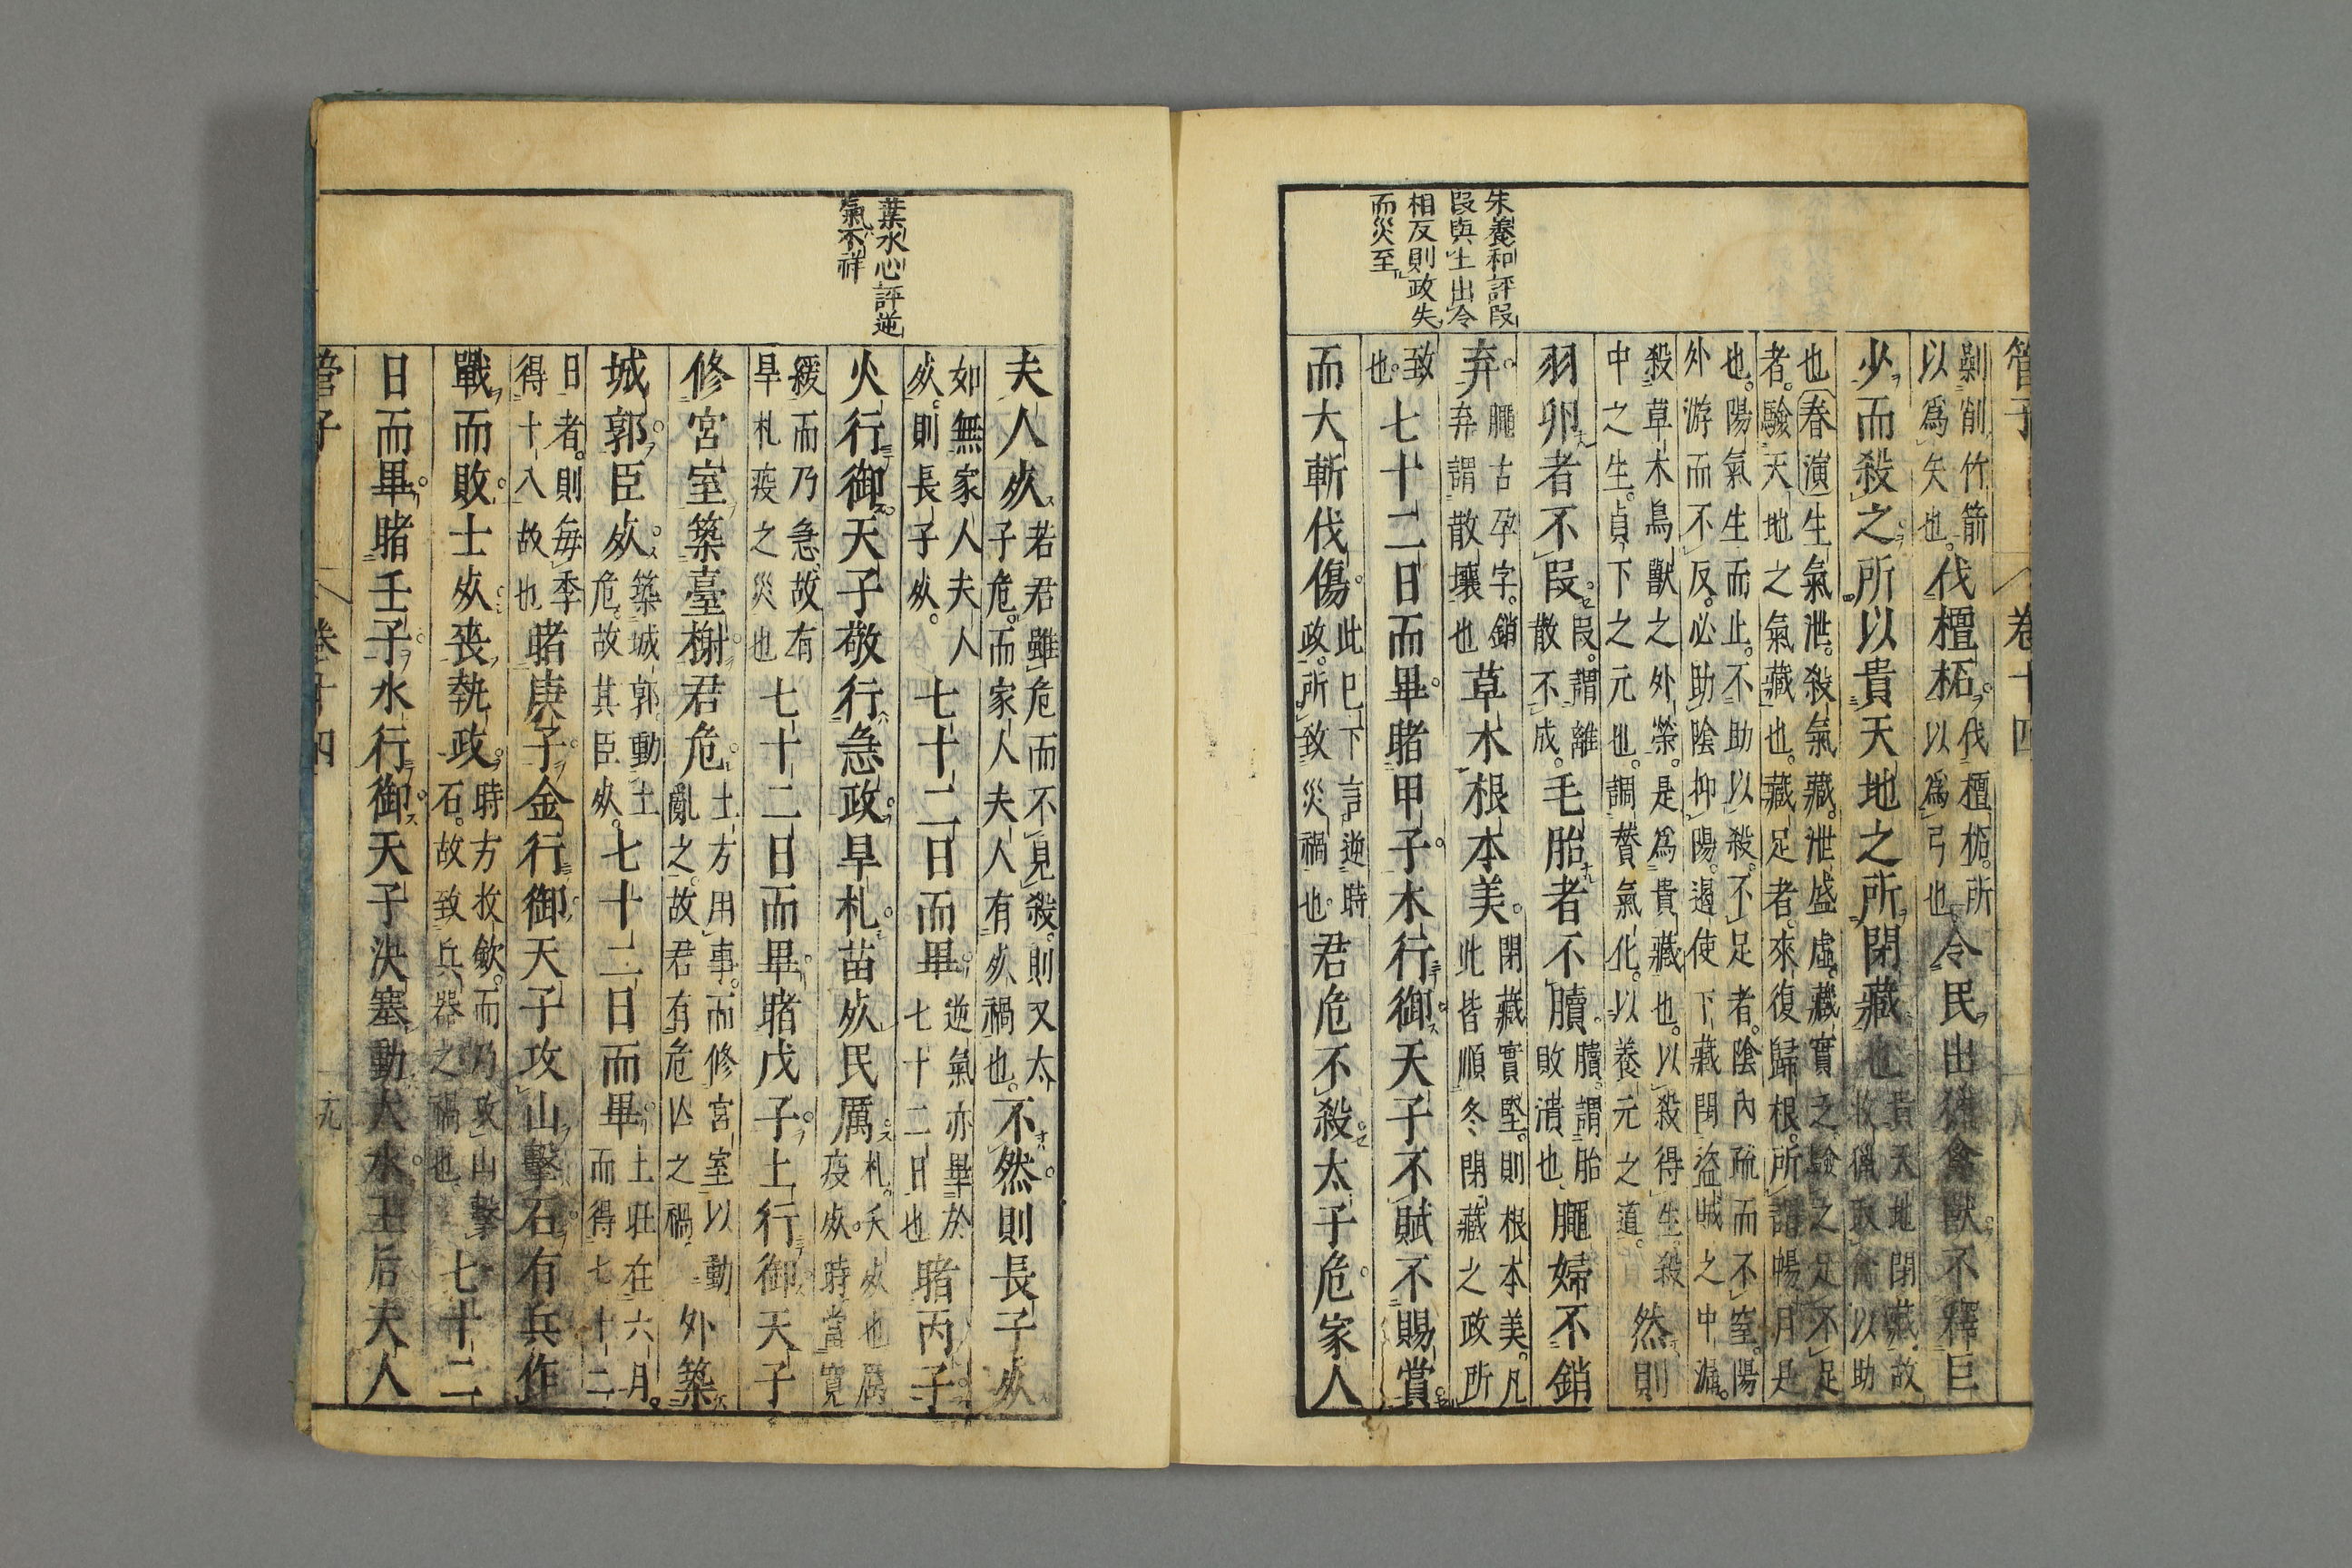 管子　卷十四
朱養和評段
段與生出令
相反則政失
而災至
剝削竹箭以爲矢也。伐檀柘。伐檀柘。所以爲弓也令民出獵禽獸。不釋巨
少而殺之。所以貴天地之所閉藏也貴天地閉藏。故收獵取禽以助
也春演生氣泄。殺氣藏。泄盛虛。藏實之驗之足不足者。驗天地之氣藏也。藏足者。來復歸根。所謂暢月是
也。陽氣生而止。不助以殺。不足者。陰內疏而不窒。陽外游而不反。必助陰抑陽。遏使下藏閉盜城之中漏。
殺草木鳥獸之外榮。是爲貴藏也。以殺得生殺中之生。貞下之元也。調贊氣化。以養元之道。然則
羽卵者不段。段。謂離散不成。毛胎者不膭。膭。謂胎敗潰也䐗婦不銷
弃。䐗古孕字。銷弃謂散壞也草木根本美。閉藏實堅。則根本美。凡此皆順冬閉藏之政所
致也。七十二日而畢。睹甲子。木行御。天子不賦不賜賞。
而大斬伐傷。此已下言逆時政。所致災禍也。君危不殺太子危。家人
葉水心評逆
氣不祥
夫人死若君雖危而不見殺。則又太子危。而家人夫人有死禍也。不然。則長子死
如無家人夫人死。則長子死。七十二日而畢。逆氣亦畢於七十二日也睹丙子
火行御。天子敬行急政。旱札。苗死民厲札。夭死也厲疫死。時當寬
緩而乃急故有旱札疫之災也七十二日而畢。睹戊子。土行御。天子
修宮室築臺榭。君危。土方用事。而修宮室以動亂之。故君有危亡之禍外築
城郭。臣死。築城郭。動土危。故其臣死。七十二日而畢。土旺在六月。而得七十二
日者。則每季得十八故也睹庚子。金行御。天子攻山擊石。有兵作
戰而敗。士死。喪執政。時方收歛。而乃攻山擊石。故致兵器之禍也七十二
日而畢。睹壬子。水行御。天子決塞動大水。王后夫人
管子　卷十四　十九